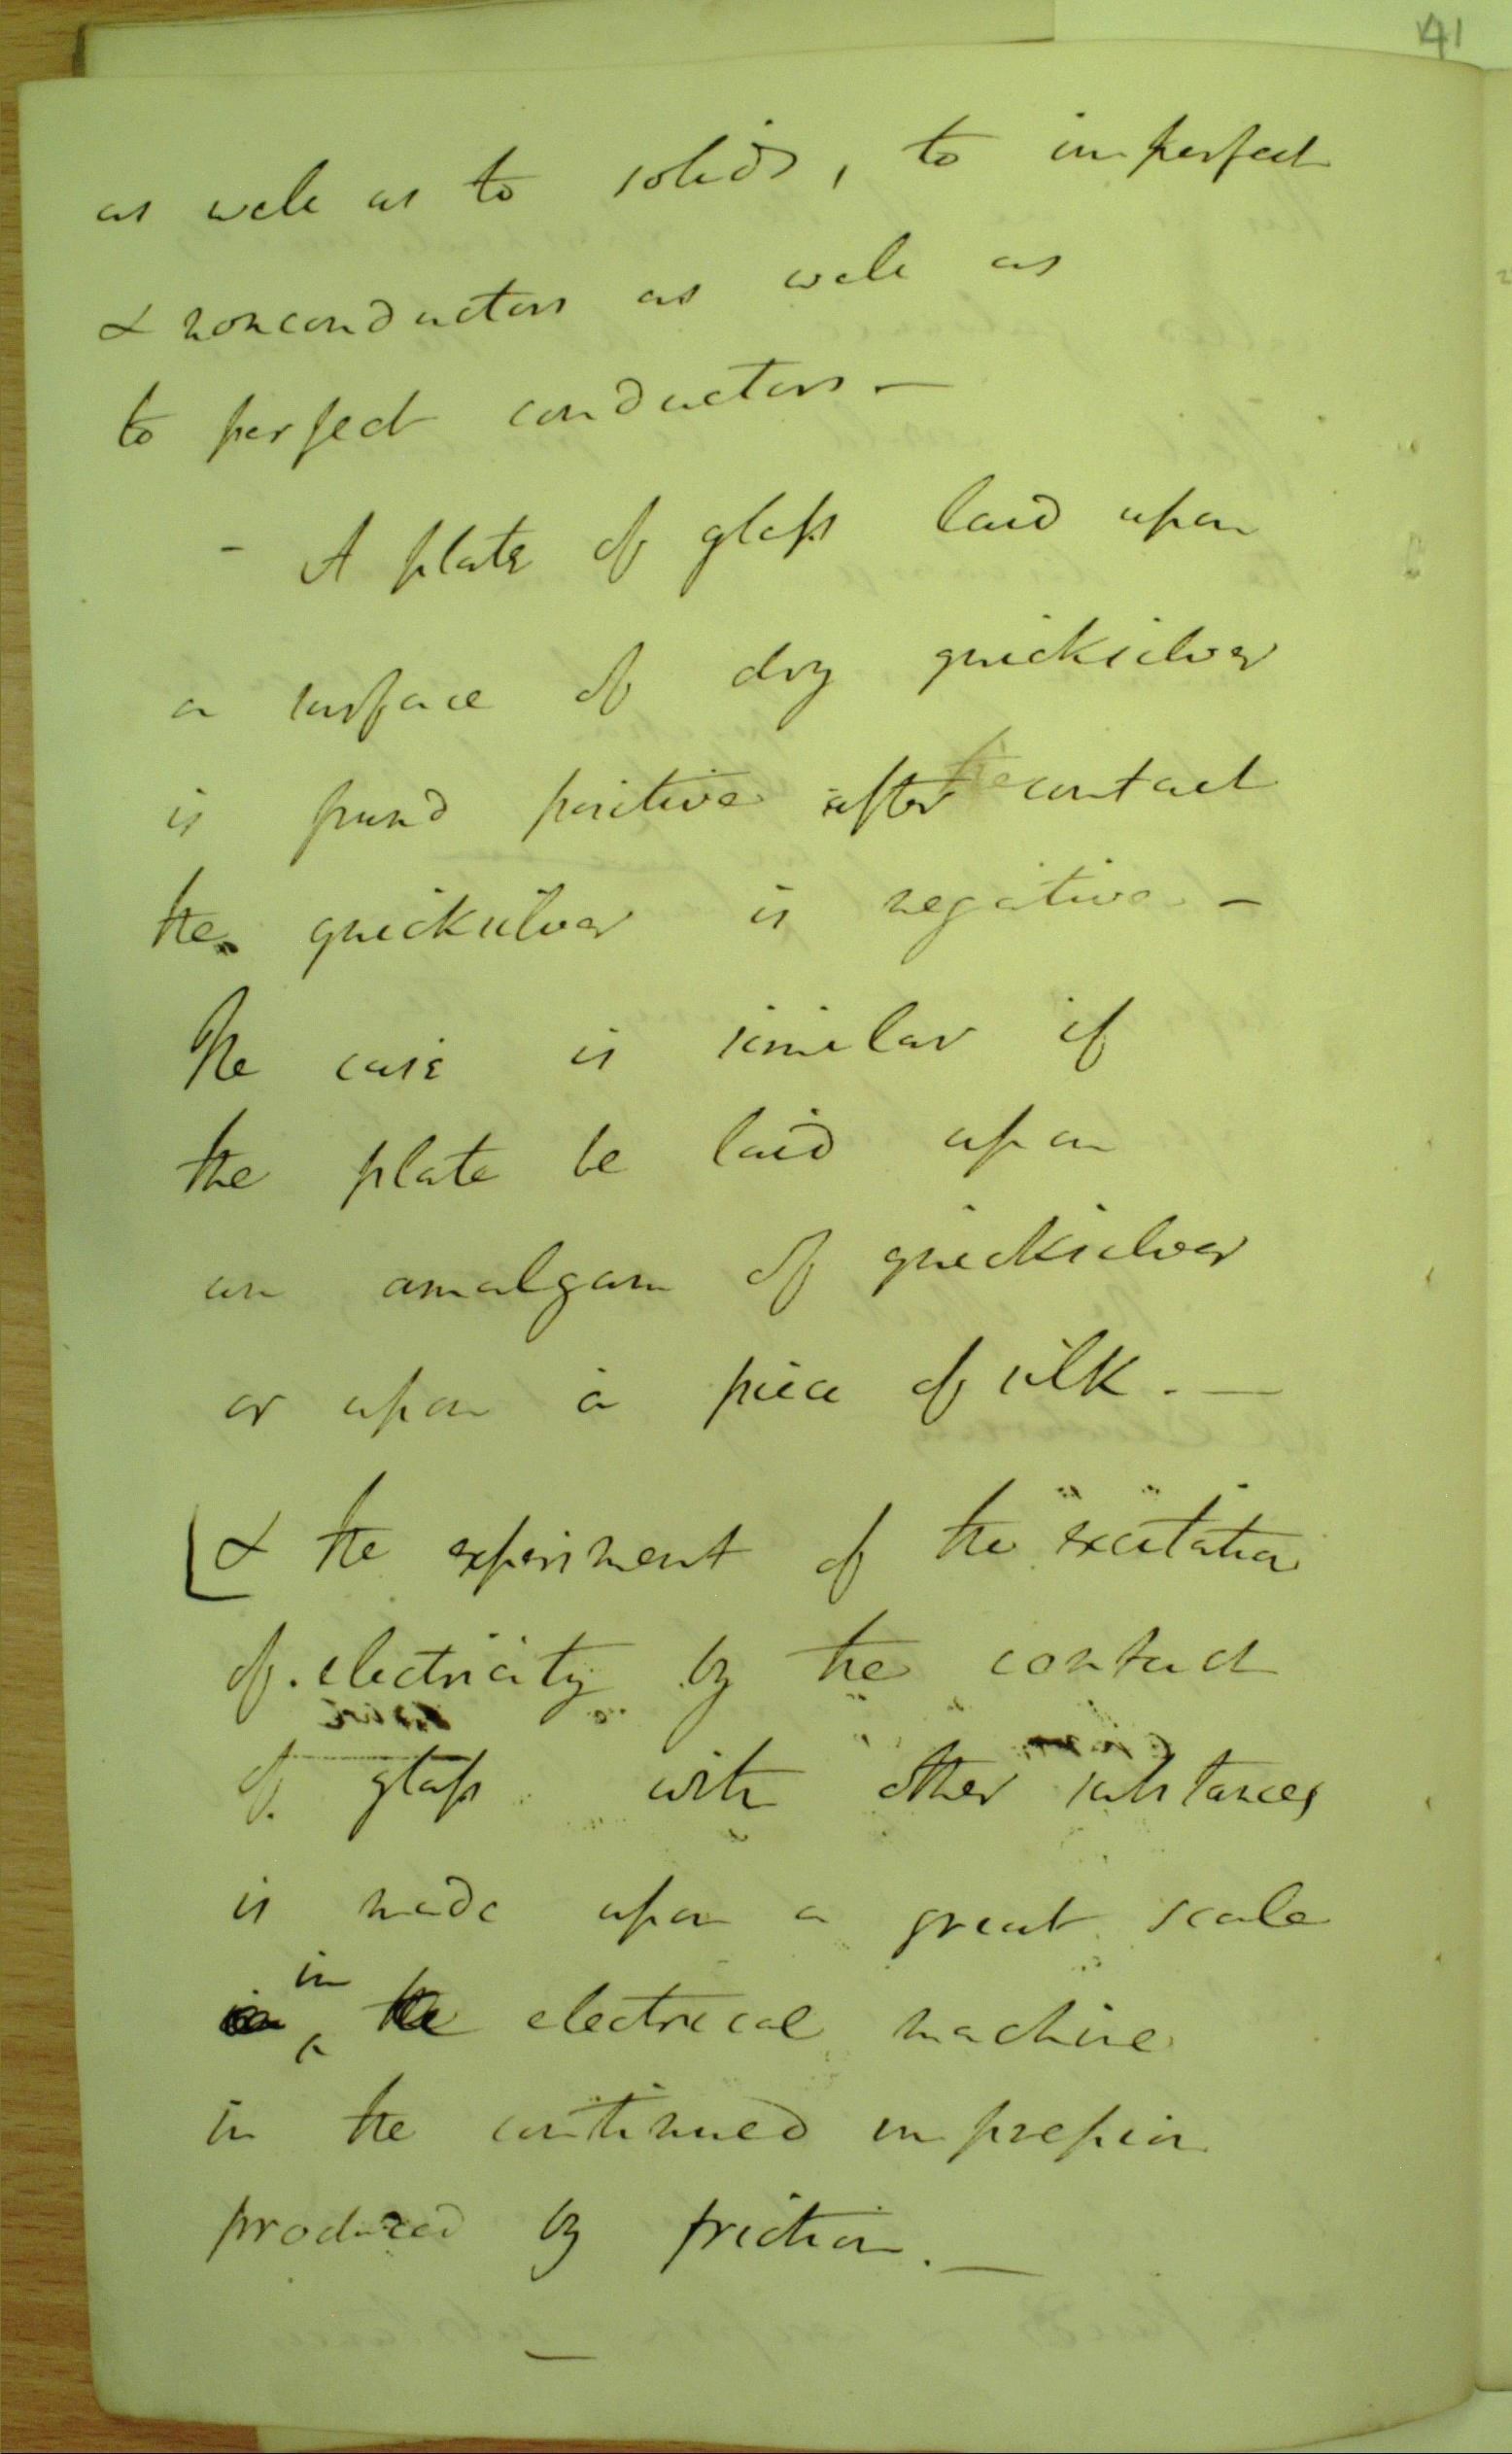 41
as well as to solids, to imperfect
& nonconductors as well as
to perfect conductors —
- A plate of glass laid upon
a surface of dry quicksilver
is found positive after the contact
the quicksilver is negative -
The case is similar if
the plate be laid upon
an amalgam of quicksilver
or upon a piece of silk. —
[& the experiment of the excitation
of electricity by the contact
of glass with other substances
is made upon a great scale
in
^ the electrical machine
in the continued impression
produced by friction. —